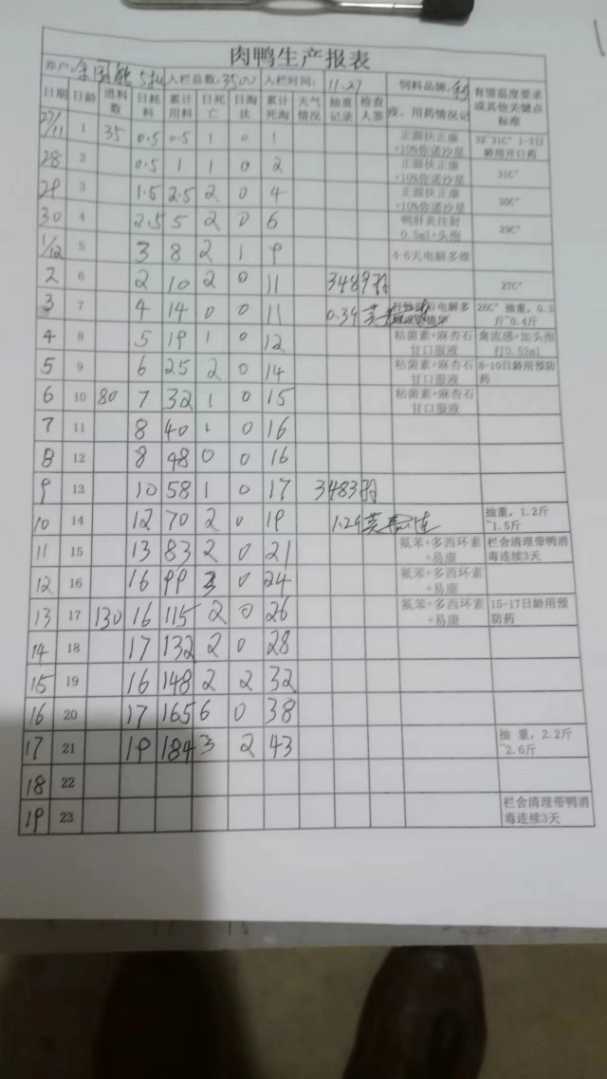 肉鸭生产报表
养户: 入栏总数:3500 入栏时间: 11.27 饲料品牌:
日期 日龄 进料数 日耗料 累计用料 日死亡 日淘汰 累计死淘 天气情况 抽重记录 检查人签 疫、用药情况记 有馏温度要求或其他关键点标准
27/11 1 35 0.5 0.5 1 0 1 32-31C° 1-3日龄用开口药
28 2 0.5 1 1 0 2 31C°
29 3 1.5 2.5 2 0 4 30C°
30 4 2.5 5 2 0 6 鸭肝炎注射0.5ml+头孢 29C°
1/12 5 3 8 2 1 9 4-6天电解多维
2 6 2 10 2 0 11 3489羽 27C°
3 7 4 14 0 0 11 0.39 26C° 抽重,0.3斤~0.4斤
4 8 5 19 1 0 12 粘菌素+麻杏石甘口服液 禽流感+加头孢打0.55ml
5 9 6 25 2 0 14 粘菌素+麻杏石甘口服液 8-10日龄用预防药
6 10 80 7 32 1 0 15 粘菌素+麻杏石甘口服液
7 11 8 40 1 0 16
8 12 8 48 0 0 16
9 13 10 58 1 0 17 3483羽
10 14 12 70 2 0 19 1.29 抽重,1.2斤~1.5斤
11 15 13 83 2 0 21 氟苯+多西环素+易康 栏舍清理带鸭消毒连续3天
12 16 16 99 3 0 24 氟苯+多西环素+易康
13 17 130 16 115 2 0 26 氟苯+多西环素+易康 15-17日龄用预防药
14 18 17 132 2 0 28
15 19 16 148 2 2 32
16 20 17 165 6 0 38
17 21 19 184 3 2 43 抽重,2.2斤~2.6斤
18 22
19 23 栏舍清理带鸭消毒连续3天